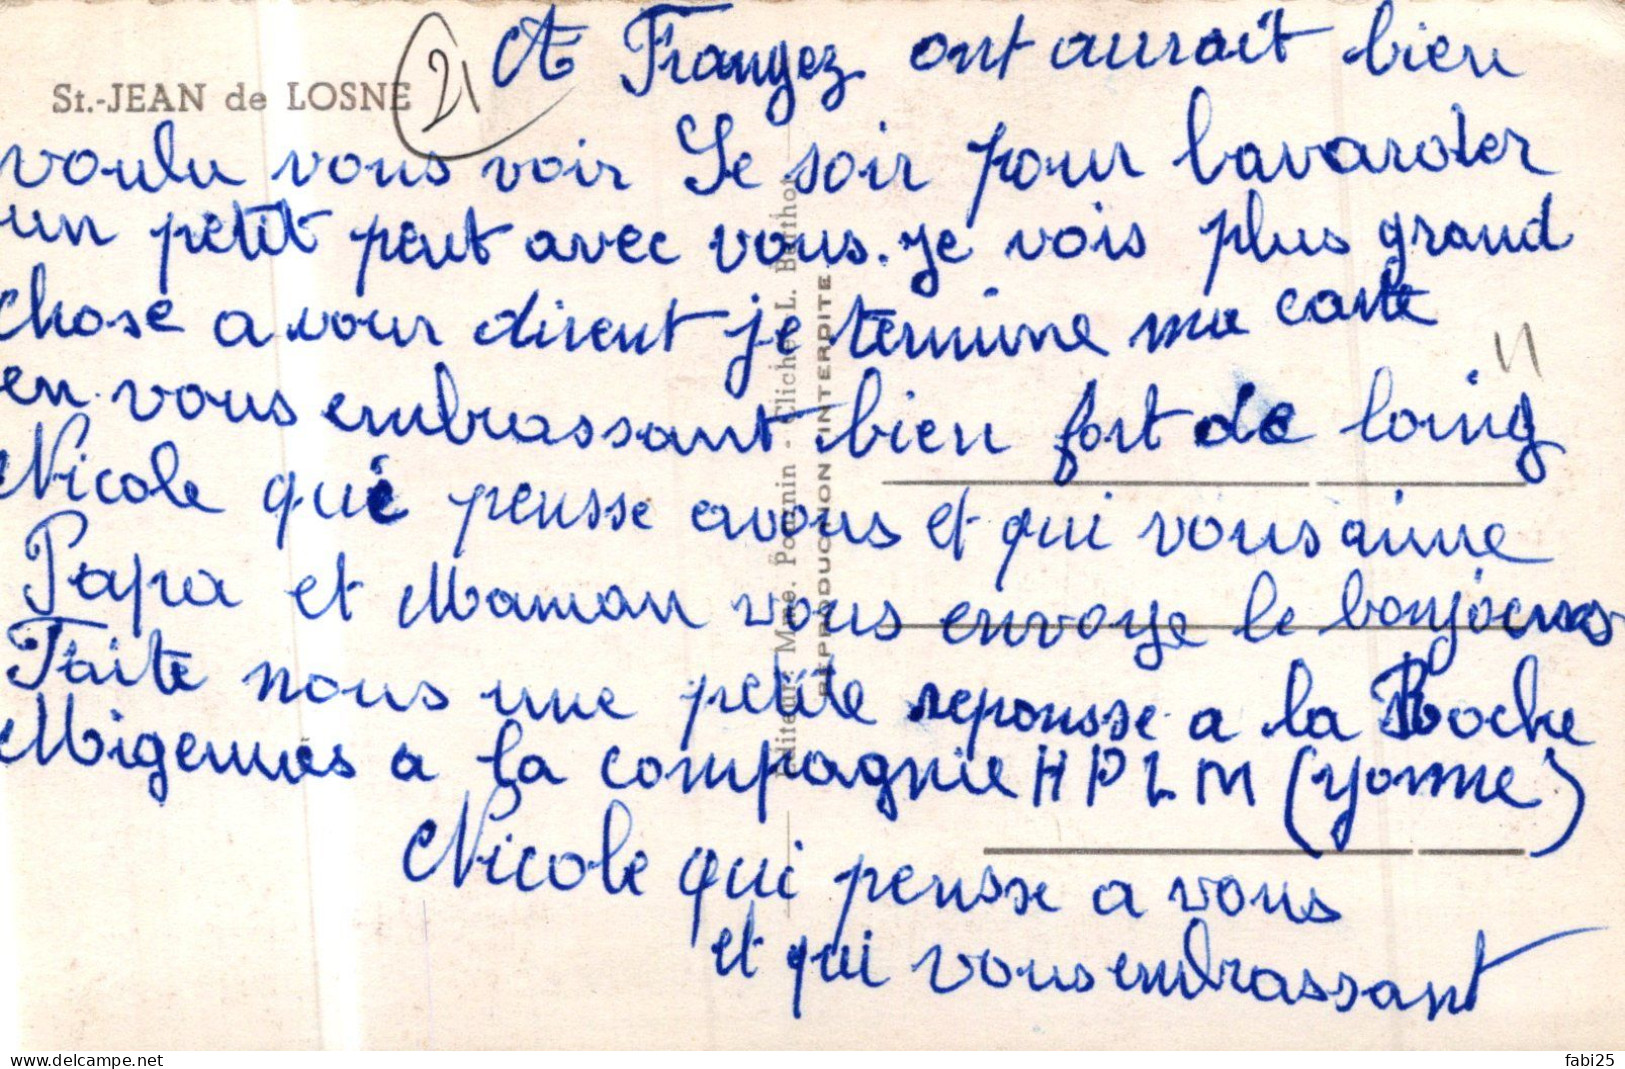 St.-JEAN de LOSNE
21
A Frangez ont aurait bien
voulu vous voir Le soir pour bavarder
un petit peut avec vous. je vois plus grand
chose a vour dirent je termine ma carte
en vous embrassant bien fort de loing
Nicole qui pensse avous et qui vous aime
Papa et Maman vous envoye le bonjours
Faite nous une petite reponsse a la Roche
Migennes a la compagnie H P L M (yonne)
Nicole qui pensse a vous
et qui vous embrassant
REPRODUCTION INTERDITE
delcampe.net
fabi25